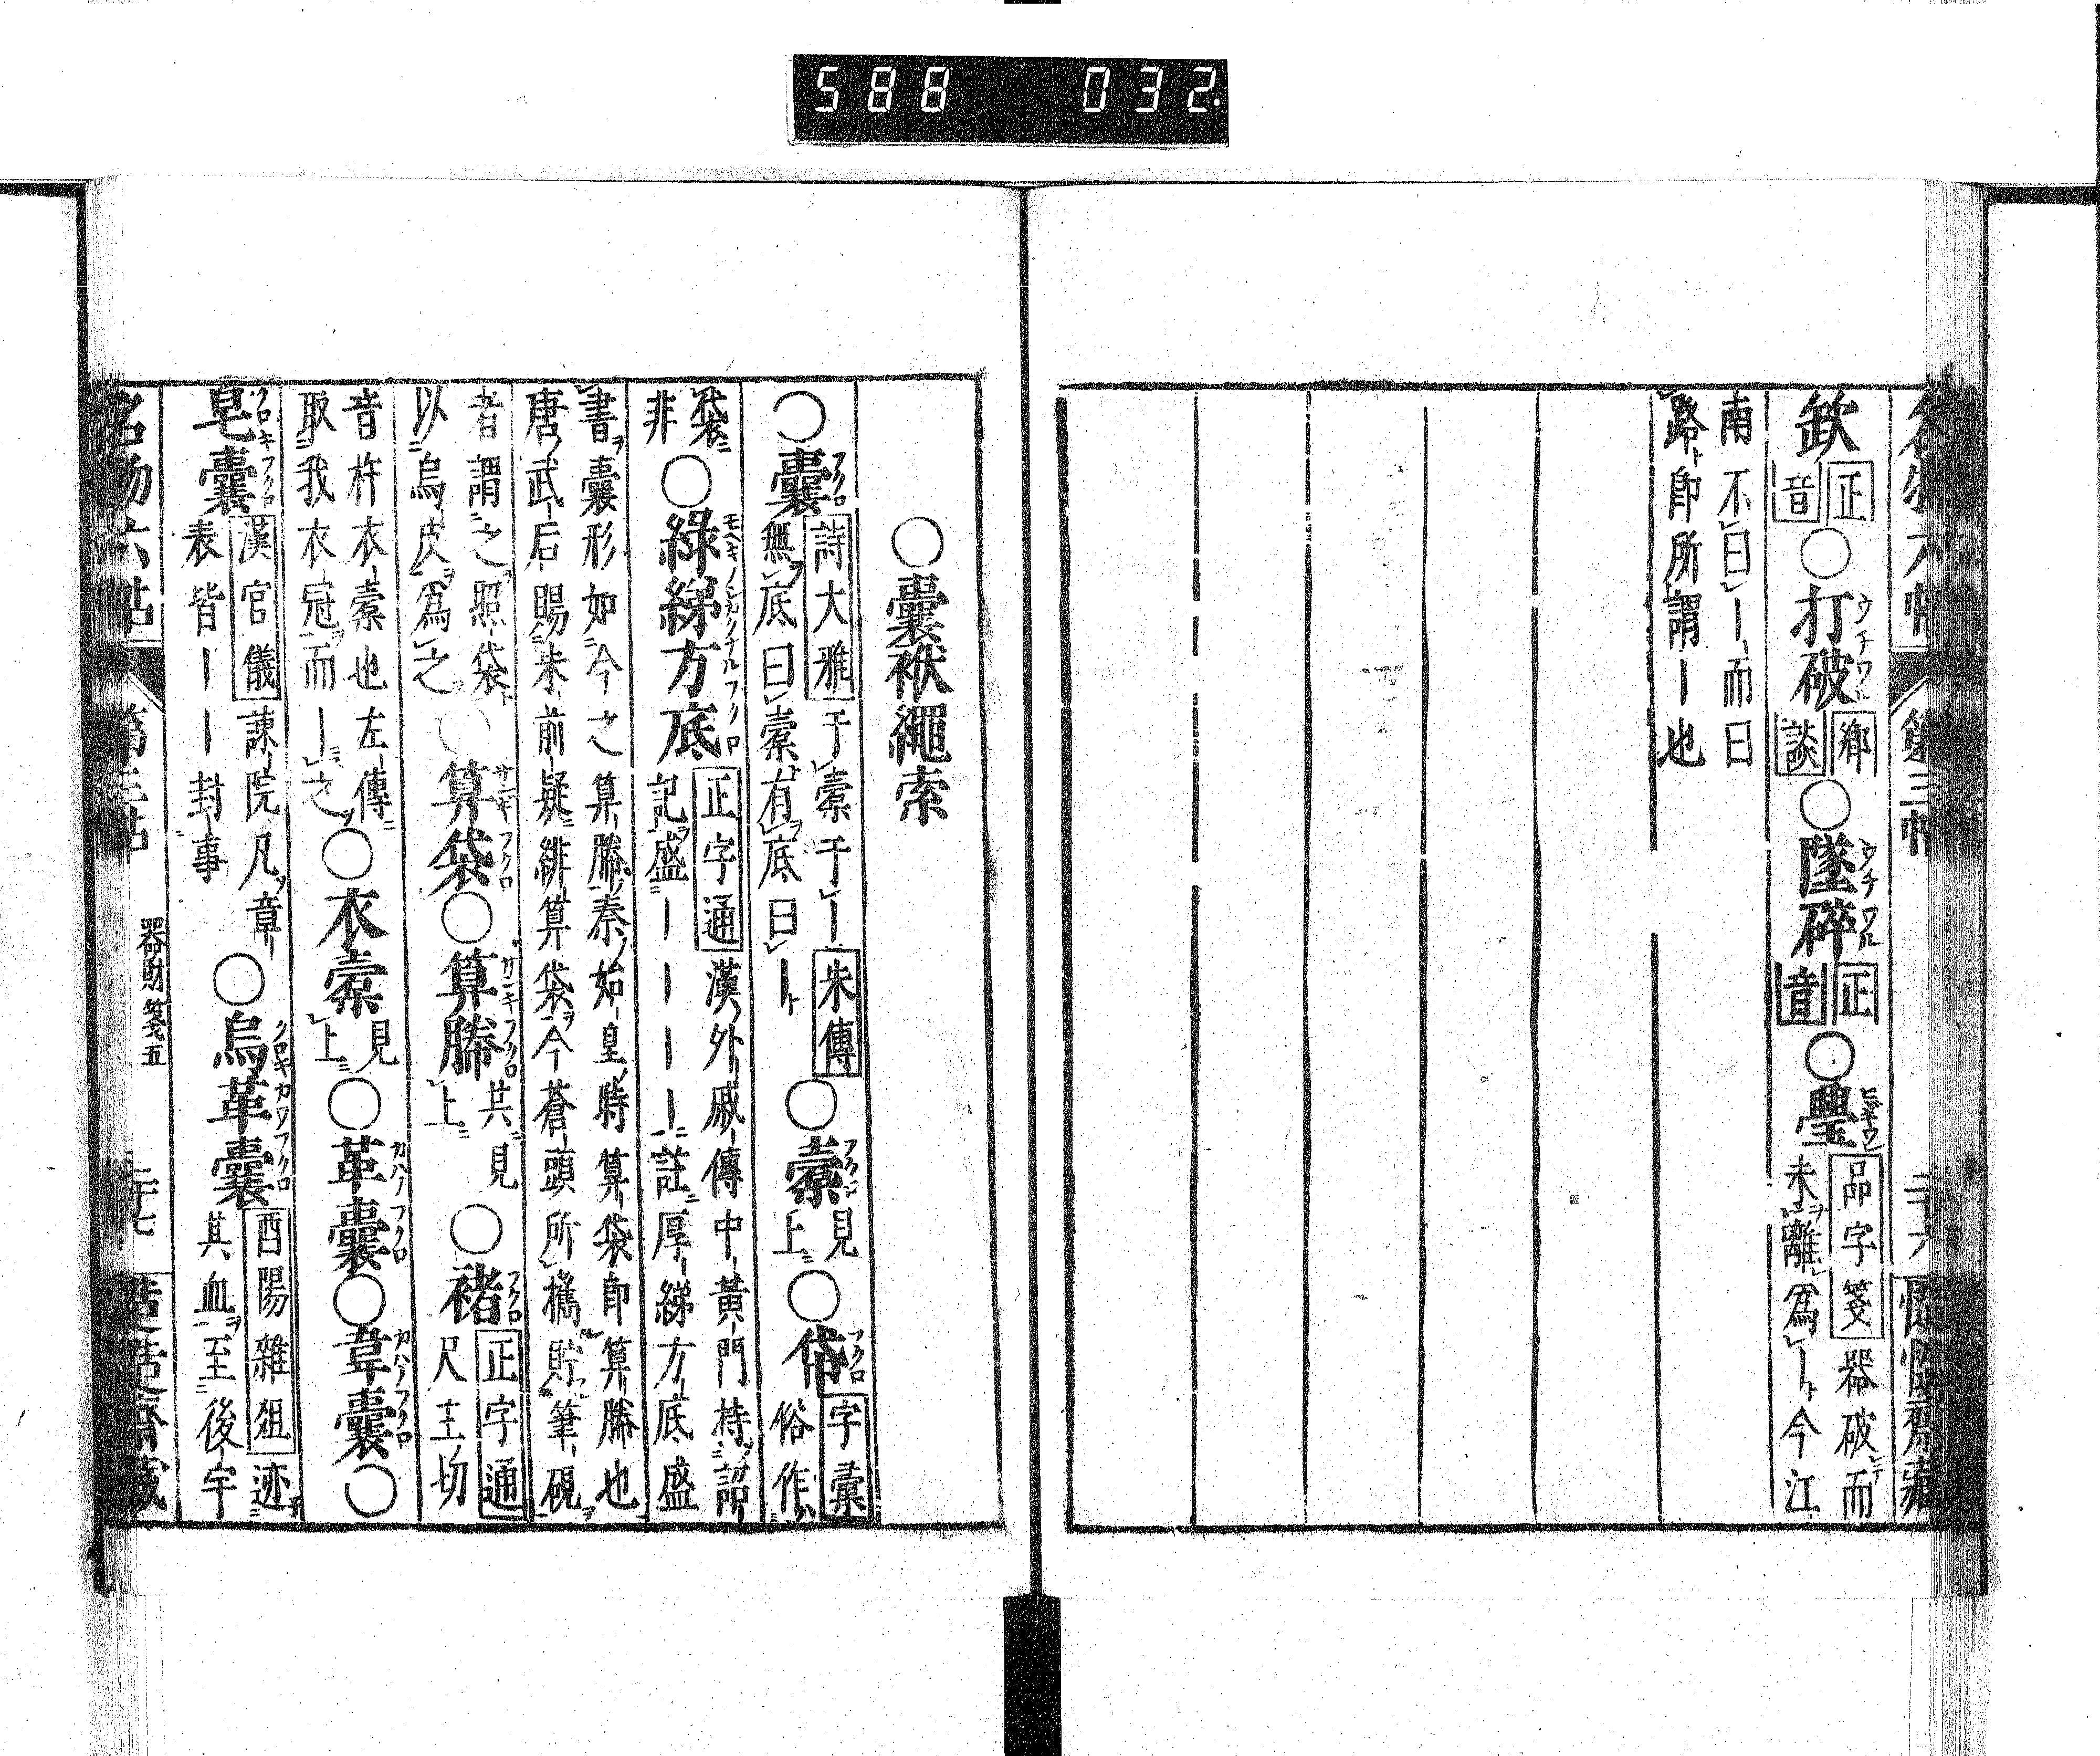 588 032
名物六帖 第三帖 二十六
欸 正音 ○打破 ウチワル 鄉談 ○墜碎 ウチワル 正音 ○璺 品字箋 器破而
未離爲｜今江
南不曰｜而曰
路卽所謂｜也
○囊袱繩索
○囊 フクロ 詩大雅 于橐于｜ 朱傳
無底曰橐有底曰｜
○橐 フクロ 見上 ○帒 フクロ 字彙 俗作
袋非 ○綠綈方底 モヘキノシカクナルフクロ 正字通 漢外戚傳中黃門持詔
記盛｜｜｜｜註厚綈方底盛
書囊形如今之算幐秦始皇時算袋卽算幐也
唐武后賜朱前疑緋算袋今蒼頭所攜貯筆硯
者謂之照袋
以烏皮爲之 ○算袋 サンキフクロ ○算幐 サンキフクロ 共見上 ○褚 フクロ 正字通 尺主切
音杵衣橐也左傳
取我衣冠而｜之 ○衣橐 見上 ○革囊 カハノフクロ ○韋囊 カハノフクロ ○
皂囊 クロキフクロ 漢官儀 諫院凡章
表皆｜｜封事 ○烏革囊 クロキカワフクロ 酉陽雜俎 迹
其血至後宇
名物六帖 第三帖 器財箋五 二十七